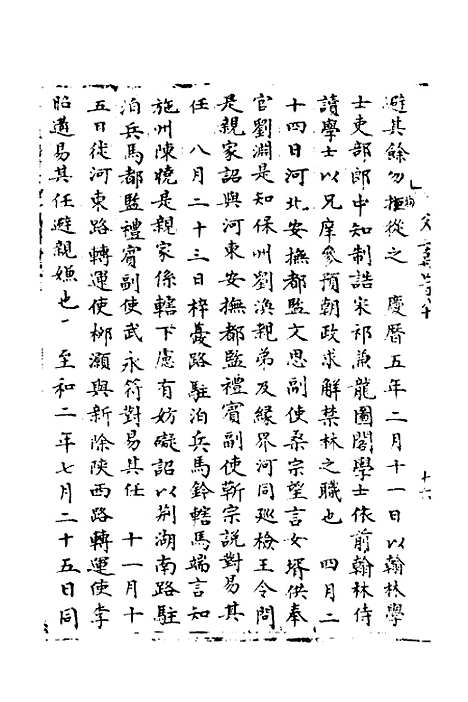 避其餘勿拘從之　慶曆五年二月十一日以翰林學
士吏部郎中知制誥宋祁兼龍圖閣學士依前翰林侍
讀學士以兄庠參預朝政求解禁林之職也　四月二
十四日河北安撫都監文思副使桑宗望言女壻供奉
官劉淵是知保州劉渙親弟及緣界河同巡檢王令問
是親家詔與河東安撫都監禮賓副使靳宗說對易其
任　八月二十三日梓夔路駐泊兵馬鈐轄馬端言知
施州陳曉是親家係轄下慮有妨礙詔以荆湖南路駐
泊兵馬都監禮賓副使武永符對易其任　十一月十
五日徙河東路轉運使柳灝與新除陝西路轉運使李
昭遘易其任避親嫌也　至和二年七月二十五日同